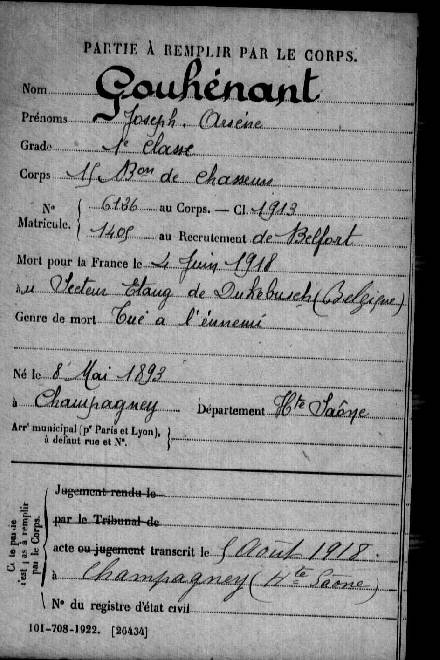 PARTIE À REMPLIR PAR LE CORPS.
Nom Gouhénant
Prénoms Joseph. Arsène
Grade 1e Classe
Corps 15 Bon de Chasseurs
Nos Matricule. { 6136 au Corps. — Cl. 1913
1405 au Recrutement de Belfort
Mort pour la France le 4 Juin 1918
à u Secteur Etang de Dikebusch (Belgique)
Genre de mort Tué à l'énnemi
Né le 8 Mai 1893
à Champagney Département Hte Saône
Arrt municipal (pr Paris et Lyon),
à défaut rue et N°.
Jugement rendu le
par le Tribunal de
acte ou jugement transcrit le 5 Août 1918.
à Champagney (Hte Saone)
N° du registre d'état civil
Cette partie
n'est pas à remplir
par le Corps.
101-708-1922. [26434]